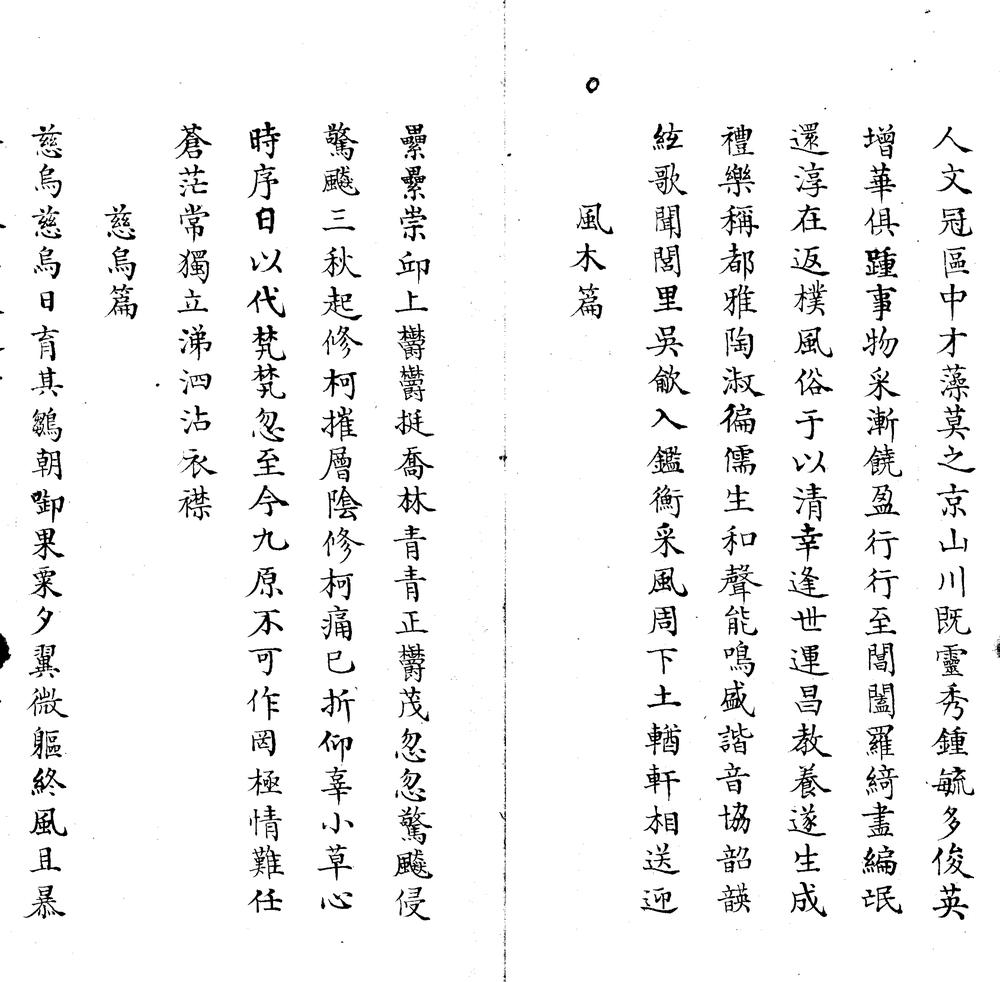 人文冠區中才藻莫之京山川既靈秀鍾毓多俊英
增華俱踵事物采漸饒盈行行至閭闔羅綺盡編氓
還淳在返樸風俗于以清幸逢世運昌教養遂生成
禮樂稱都雅陶淑徧儒生和聲能鳴盛諧音協韶韺
絃歌聞閭里吳歈入鑑衡采風周下土輶軒相送迎
風木篇
纍纍崇邱上欝欝挺喬林青青正欝茂忽忽驚飈侵
驚飈三秋起修柯摧層陰修柯痛已折仰辜小草心
時序日以代煢煢忽至今九原不可作罔極情難任
蒼茫常獨立涕泗沾衣襟
慈烏篇
慈烏慈烏日育其鶵朝啣果粟夕翼微軀終風且暴